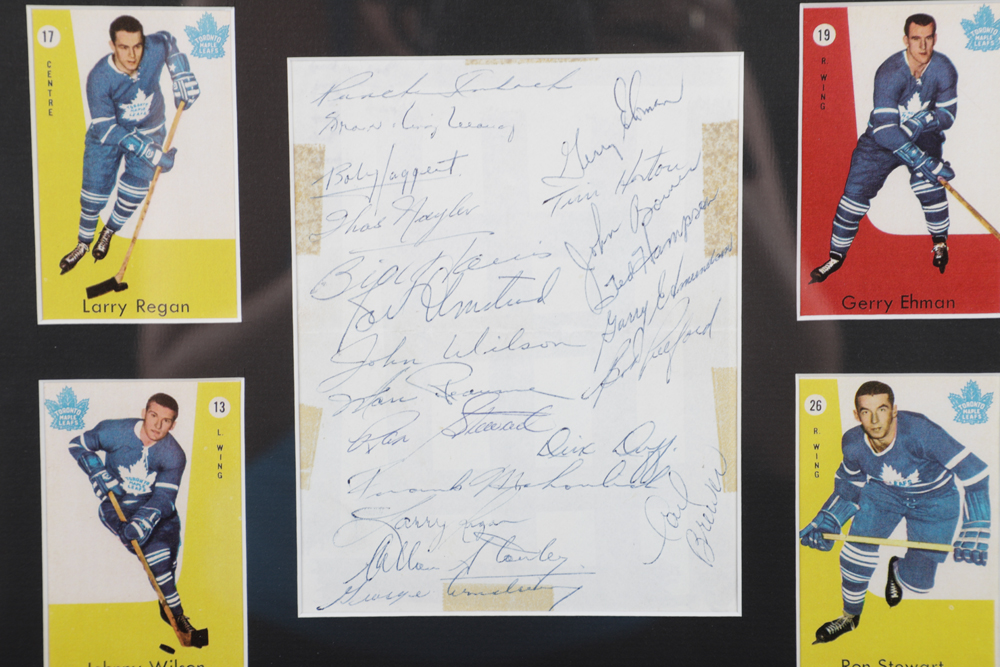 17
CENTRE
TORONTO MAPLE LEAFS
Larry Regan
TORONTO MAPLE LEAFS
13
L. WING
Johnny Wilson
Punch Imlach
Boby Haggert
Thos Naylor
John Wilson
Marc Reaume
Ron Stewart
Frank Mahovlich
Larry Regan
Allan Stanley
George Armstrong
Gerry Ehman
Tim Horton
John Bower
Ted Hampson
Garry Edmundson
Bob Pulford
Dick Duff.
Carl Brewer
19
R. WING
TORONTO MAPLE LEAFS
Gerry Ehman
26
R. WING
TORONTO MAPLE LEAFS
Ron Stewart